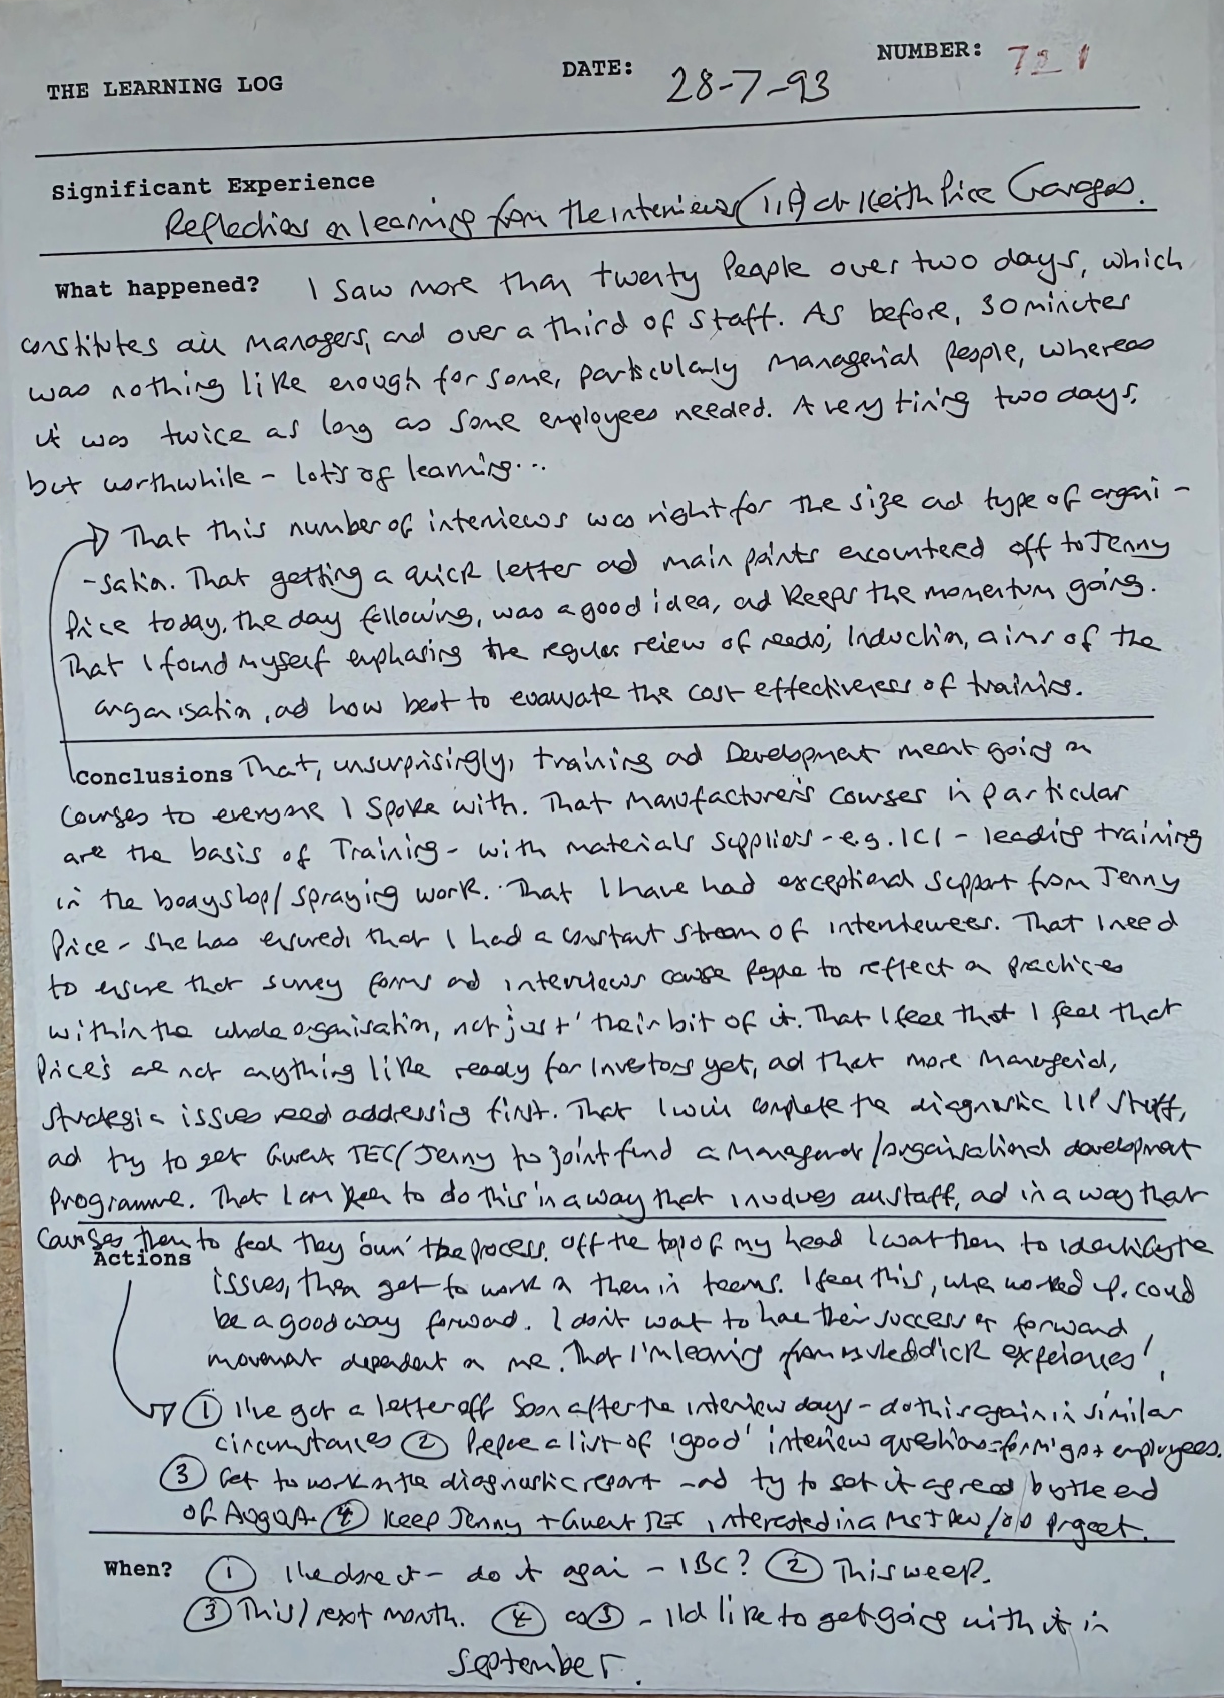 THE LEARNING LOG DATE: 28-7-93 NUMBER: 721
Significant Experience
Reflections on learning from the interviews (IIP) at Keith Price Garages.
What happened? I saw more than twenty people over two days, which
constitutes all managers, and over a third of staff. As before, 30 minutes
was nothing like enough for some, particularly managerial people, whereas
it was twice as long as some employees needed. A very tiring two days,
but worthwhile - lots of learning...
That this number of interviews was right for the size and type of organi-
-sation. That getting a quick letter and main points encountered off to Jenny
Price today, the day following, was a good idea, and keeps the momentum going.
That I found myself emphasing the regular review of needs; Induction, aims of the
organisation, and how best to evaluate the cost effectiveness of training.
Conclusions That, unsurprisingly, training and Development meant going on
courses to everyone I spoke with. That manufacturers courses in particular
are the basis of Training - with materials suppliers - e.g. ICI - leading training
in the bodyshop/spraying work. That I have had exceptional support from Jenny
Price - she has ensured that I had a constant stream of interviewees. That I need
to ensure that survey forms and interviews cause people to reflect on practices
within the whole organisation, not just 'their bit of it. That I feel that I feel that
Price's are not anything like ready for Investors yet, and that more managerial,
strategic issues need addressing first. That I will complete the diagnostic IIP stuff,
and try to get Gwent TEC/Jenny to joint fund a managerial/organisational development
programme. That I am keen to do this in a way that involves all staff, and in a way that
causes them to feel they 'own' the process. Off the top of my head I want them to identify the
Actions
issues, then get to work on them in teams. I feel this, when worked up, could
be a good way forward. I don't want to have their success or forward
movement dependent on me. That I'm learning from experiences!
① I've got a letter off soon after the interview days - do this again in similar
circumstances ② Prepare a list of 'good' interview questions - for m'gs + employees.
③ Get to work on the diagnostic report - and try to get it agreed by the end
of August. ④ Keep Jenny + Gwent TEC interested in a Mgt Dev/OD project.
When? ① I've done it - do it again - IBC? ② This week.
③ This/next month. ④ as ③ - I'd like to get going with it in
September.